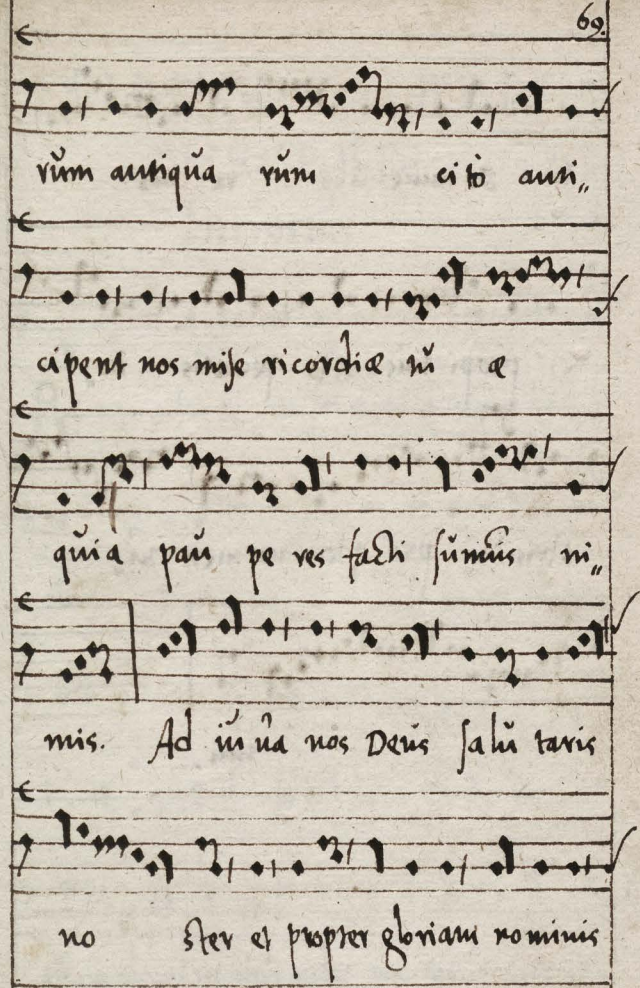 69.
rum antiqua rum cito anti„
cipent nos mise ricordiæ tu æ
quia pau pe res facti sumus ni„
mis. Ad iu ua nos Deus salu taris
no ster et propter gloriam nominis